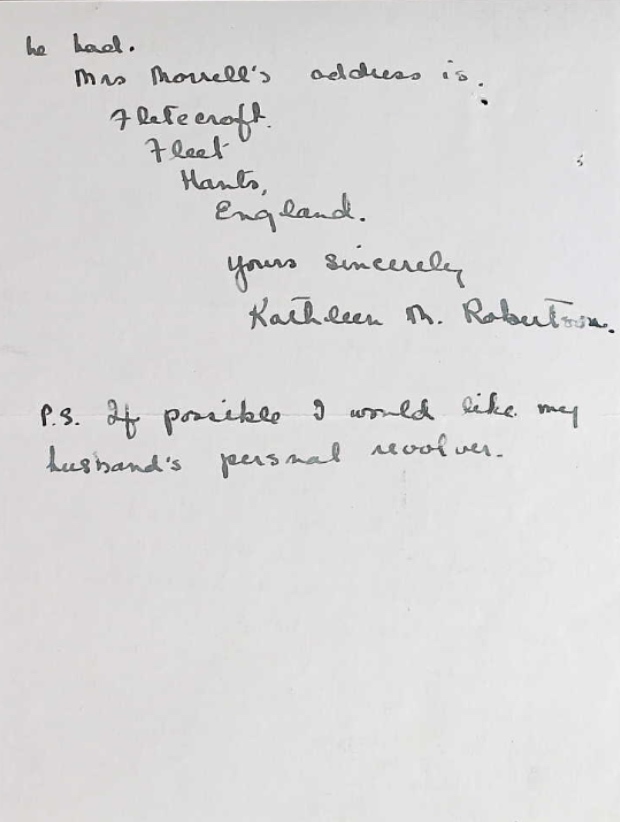 he had.
Mrs Morrell's address is.
Fletecroft.
Fleet
Hants,
England.
yours sincerely
Kathleen M. Robertson.
P.S. If possible I would like my
husband's persnal revolver.